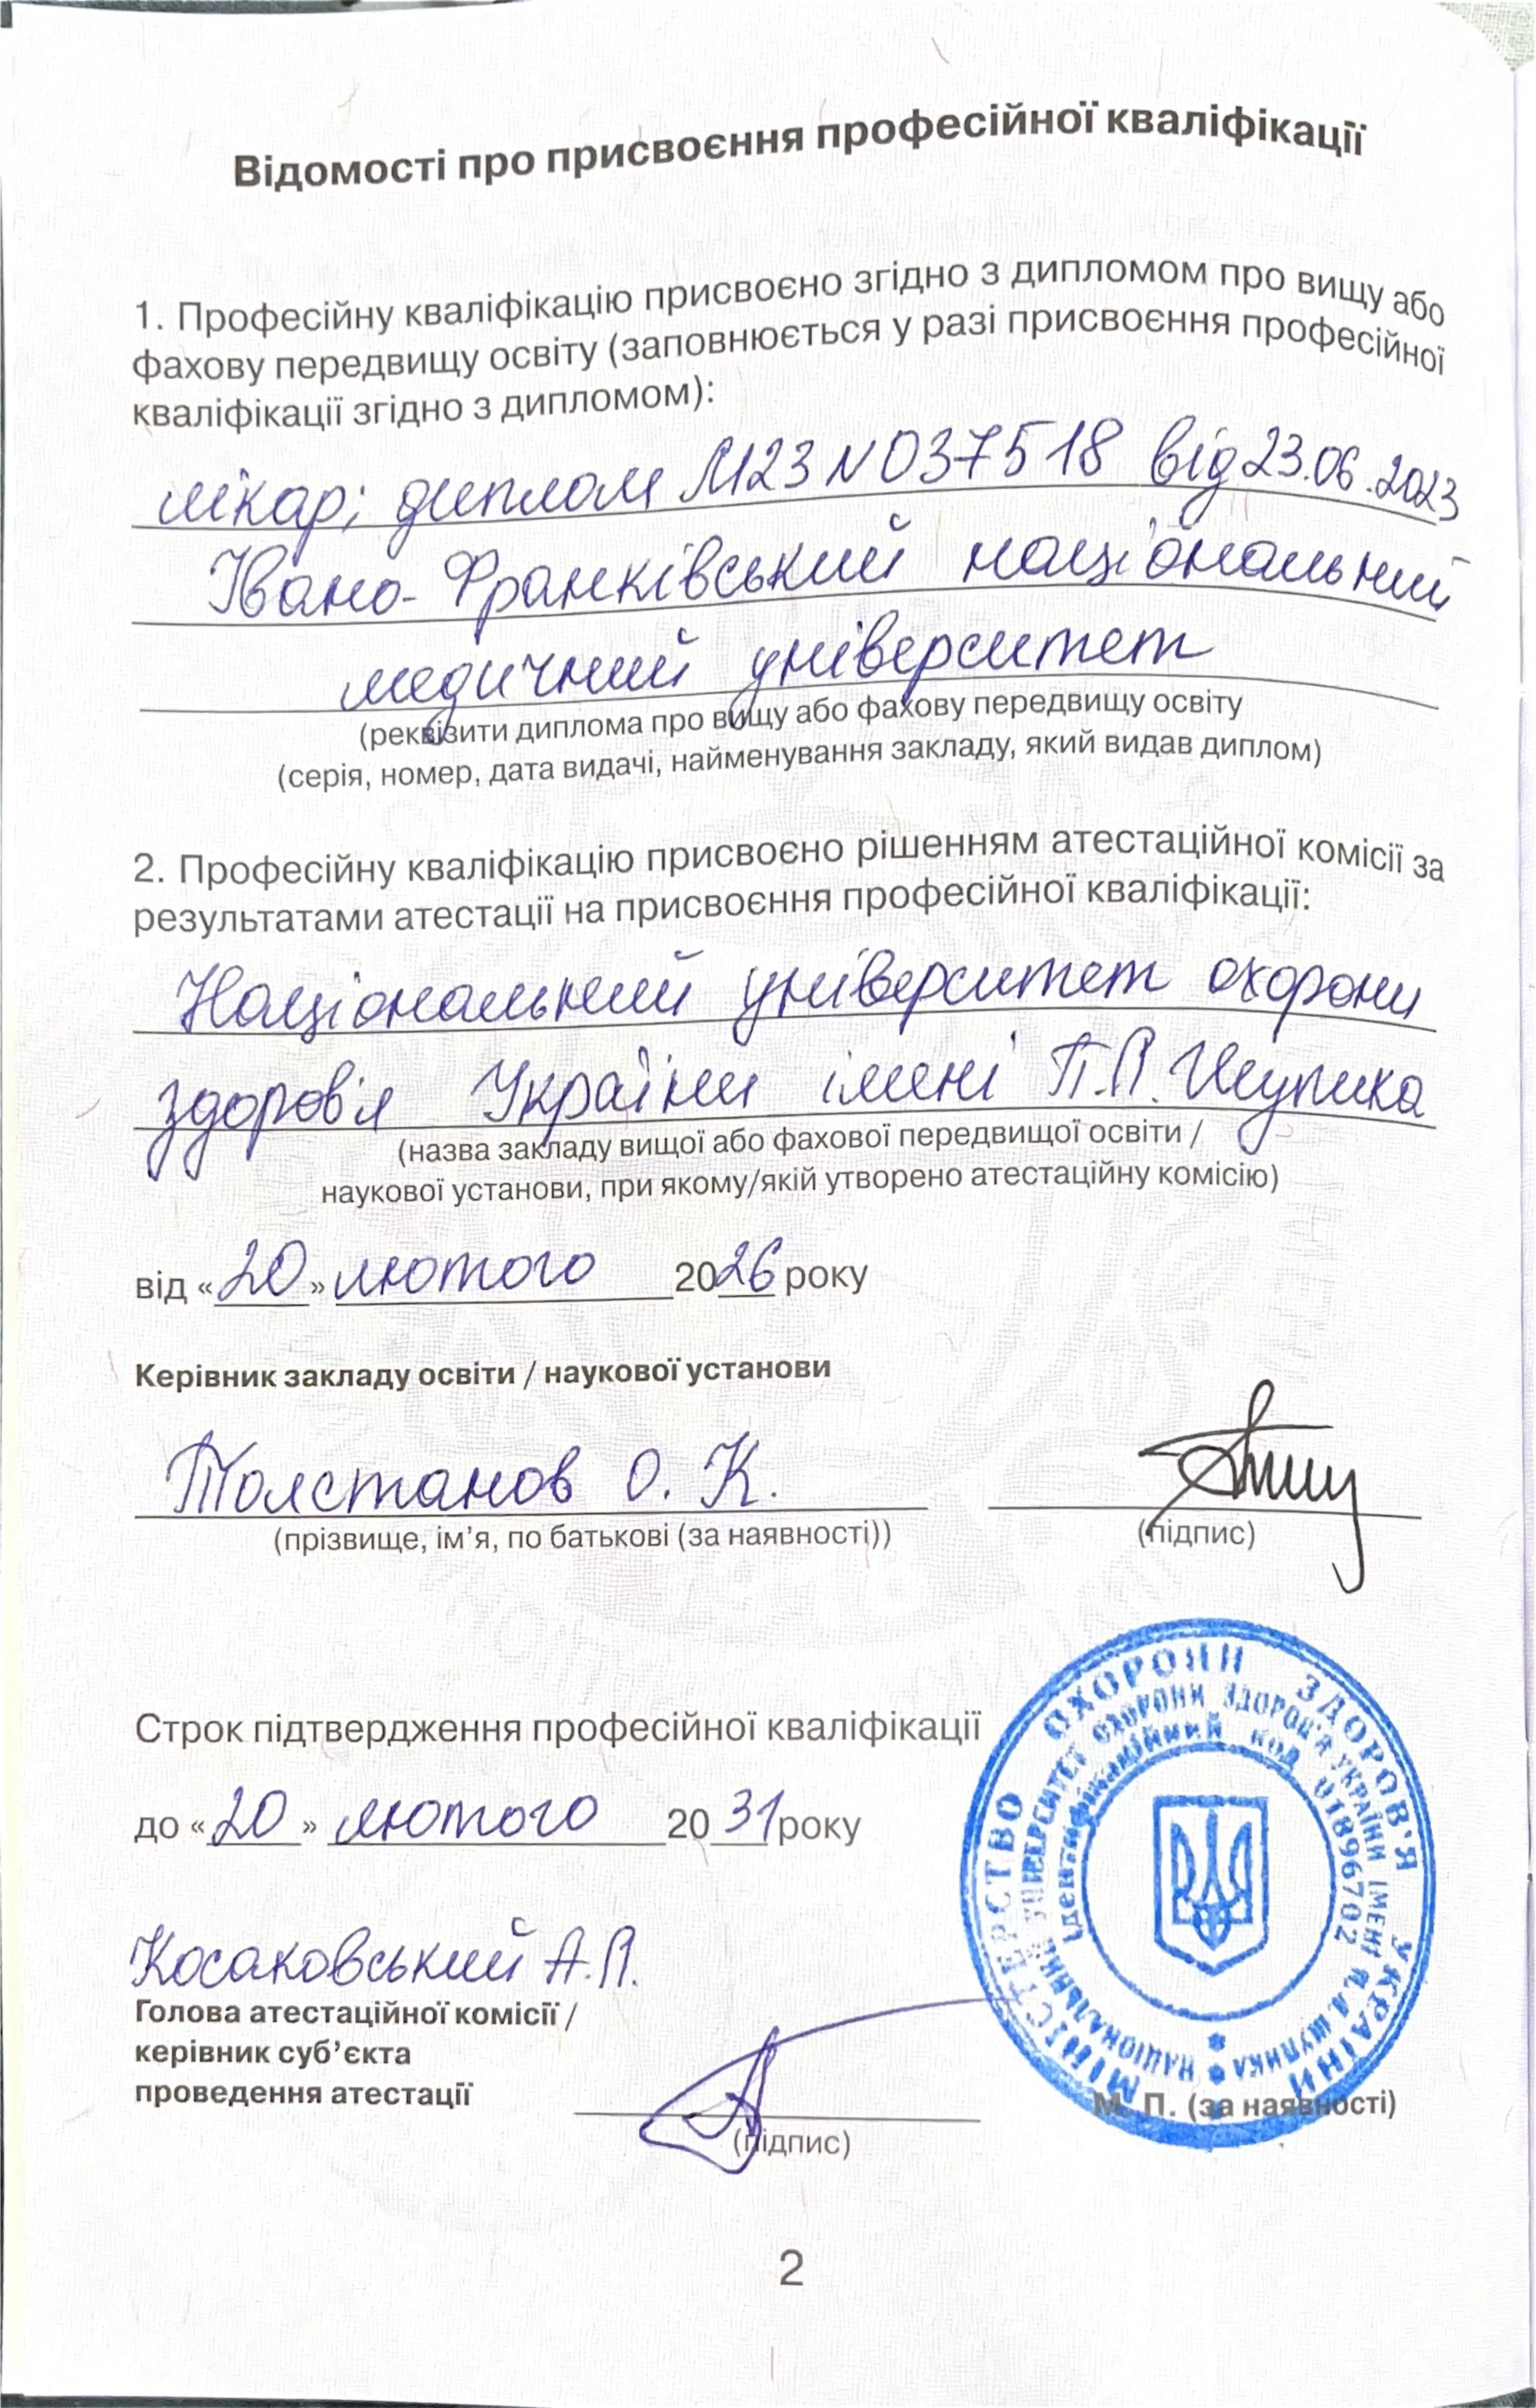 Відомості про присвоєння професійної кваліфікації
1. Професійну кваліфікацію присвоєно згідно з дипломом про вищу або
фахову передвищу освіту (заповнюється у разі присвоєння професійної
кваліфікації згідно з дипломом):
лікар; диплом М23 N 037518 від 23.06.2023
Івано-Франківський національний
медичний університет
(реквізити диплома про вищу або фахову передвищу освіту
(серія, номер, дата видачі, найменування закладу, який видав диплом)
2. Професійну кваліфікацію присвоєно рішенням атестаційної комісії за
результатами атестації на присвоєння професійної кваліфікації:
Національний університет охорони
здоров'я України імені П.Л. Шупика
(назва закладу вищої або фахової передвищої освіти /
наукової установи, при якому/якій утворено атестаційну комісію)
від «20» лютого 2026 року
Керівник закладу освіти / наукової установи
Толстанов О. К.
(прізвище, ім’я, по батькові (за наявності))
(підпис)
Строк підтвердження професійної кваліфікації
до «20» лютого 2031 року
Косаковський А.Л.
Голова атестаційної комісії /
керівник суб’єкта
проведення атестації
(підпис)
МІНІСТЕРСТВО ОХОРОНИ ЗДОРОВ'Я УКРАЇНИ
НАЦІОНАЛЬНИЙ УНІВЕРСИТЕТ ОХОРОНИ ЗДОРОВ'Я УКРАЇНИ ІМЕНІ П.Л.ШУПИКА
Ідентифікаційний код 01896702
М. П. (за наявності)
2